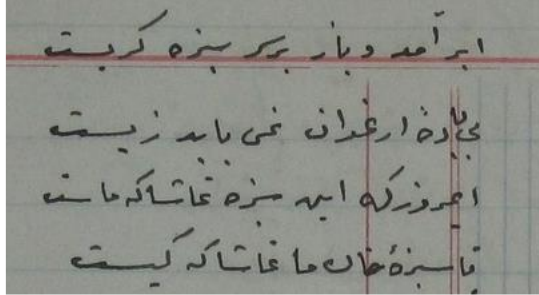 ابر آمد و باز بر سر سبزه گریست
بی بادهٔ ارغوان نمی باید زیست
امروز که این سبزه تماشاگه ماست
تا سبزهٔ خاک ما تماشاگه کیست